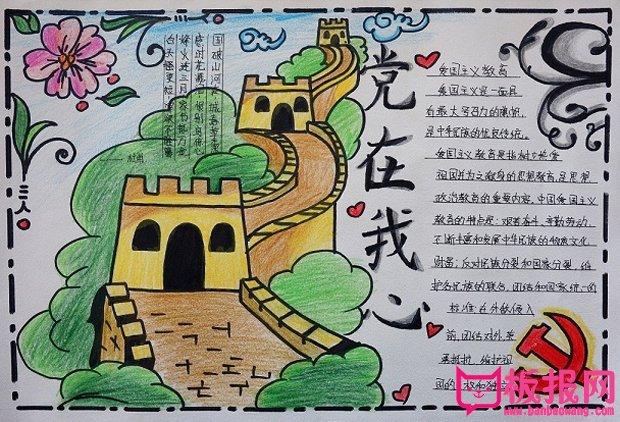 国破山河在城春草木深
感时花溅泪恨别鸟惊心
烽火连三月家书抵万金
白头搔更短浑欲不胜簪
——杜甫
党在我心
爱国主义教育
爱国主义是一面具
有最大号召力的旗帜,
是中华民族的优良传统。
爱国主义教育是指树立热爱
祖国并为之献身的思想教育,是思想
政治教育的重要内容,中国爱国主义
教育的特点是:艰苦奋斗、辛勤劳动,
不断丰富和发展中华民族的物质文化
财富;反对民族分裂和国家分裂,维
护各民族的联合,团结和国家统一的
标准;在外敌侵入
前,团结对外,英
勇抵抗,维护祖
国的 权和独
板报网
www.banbaowang.com